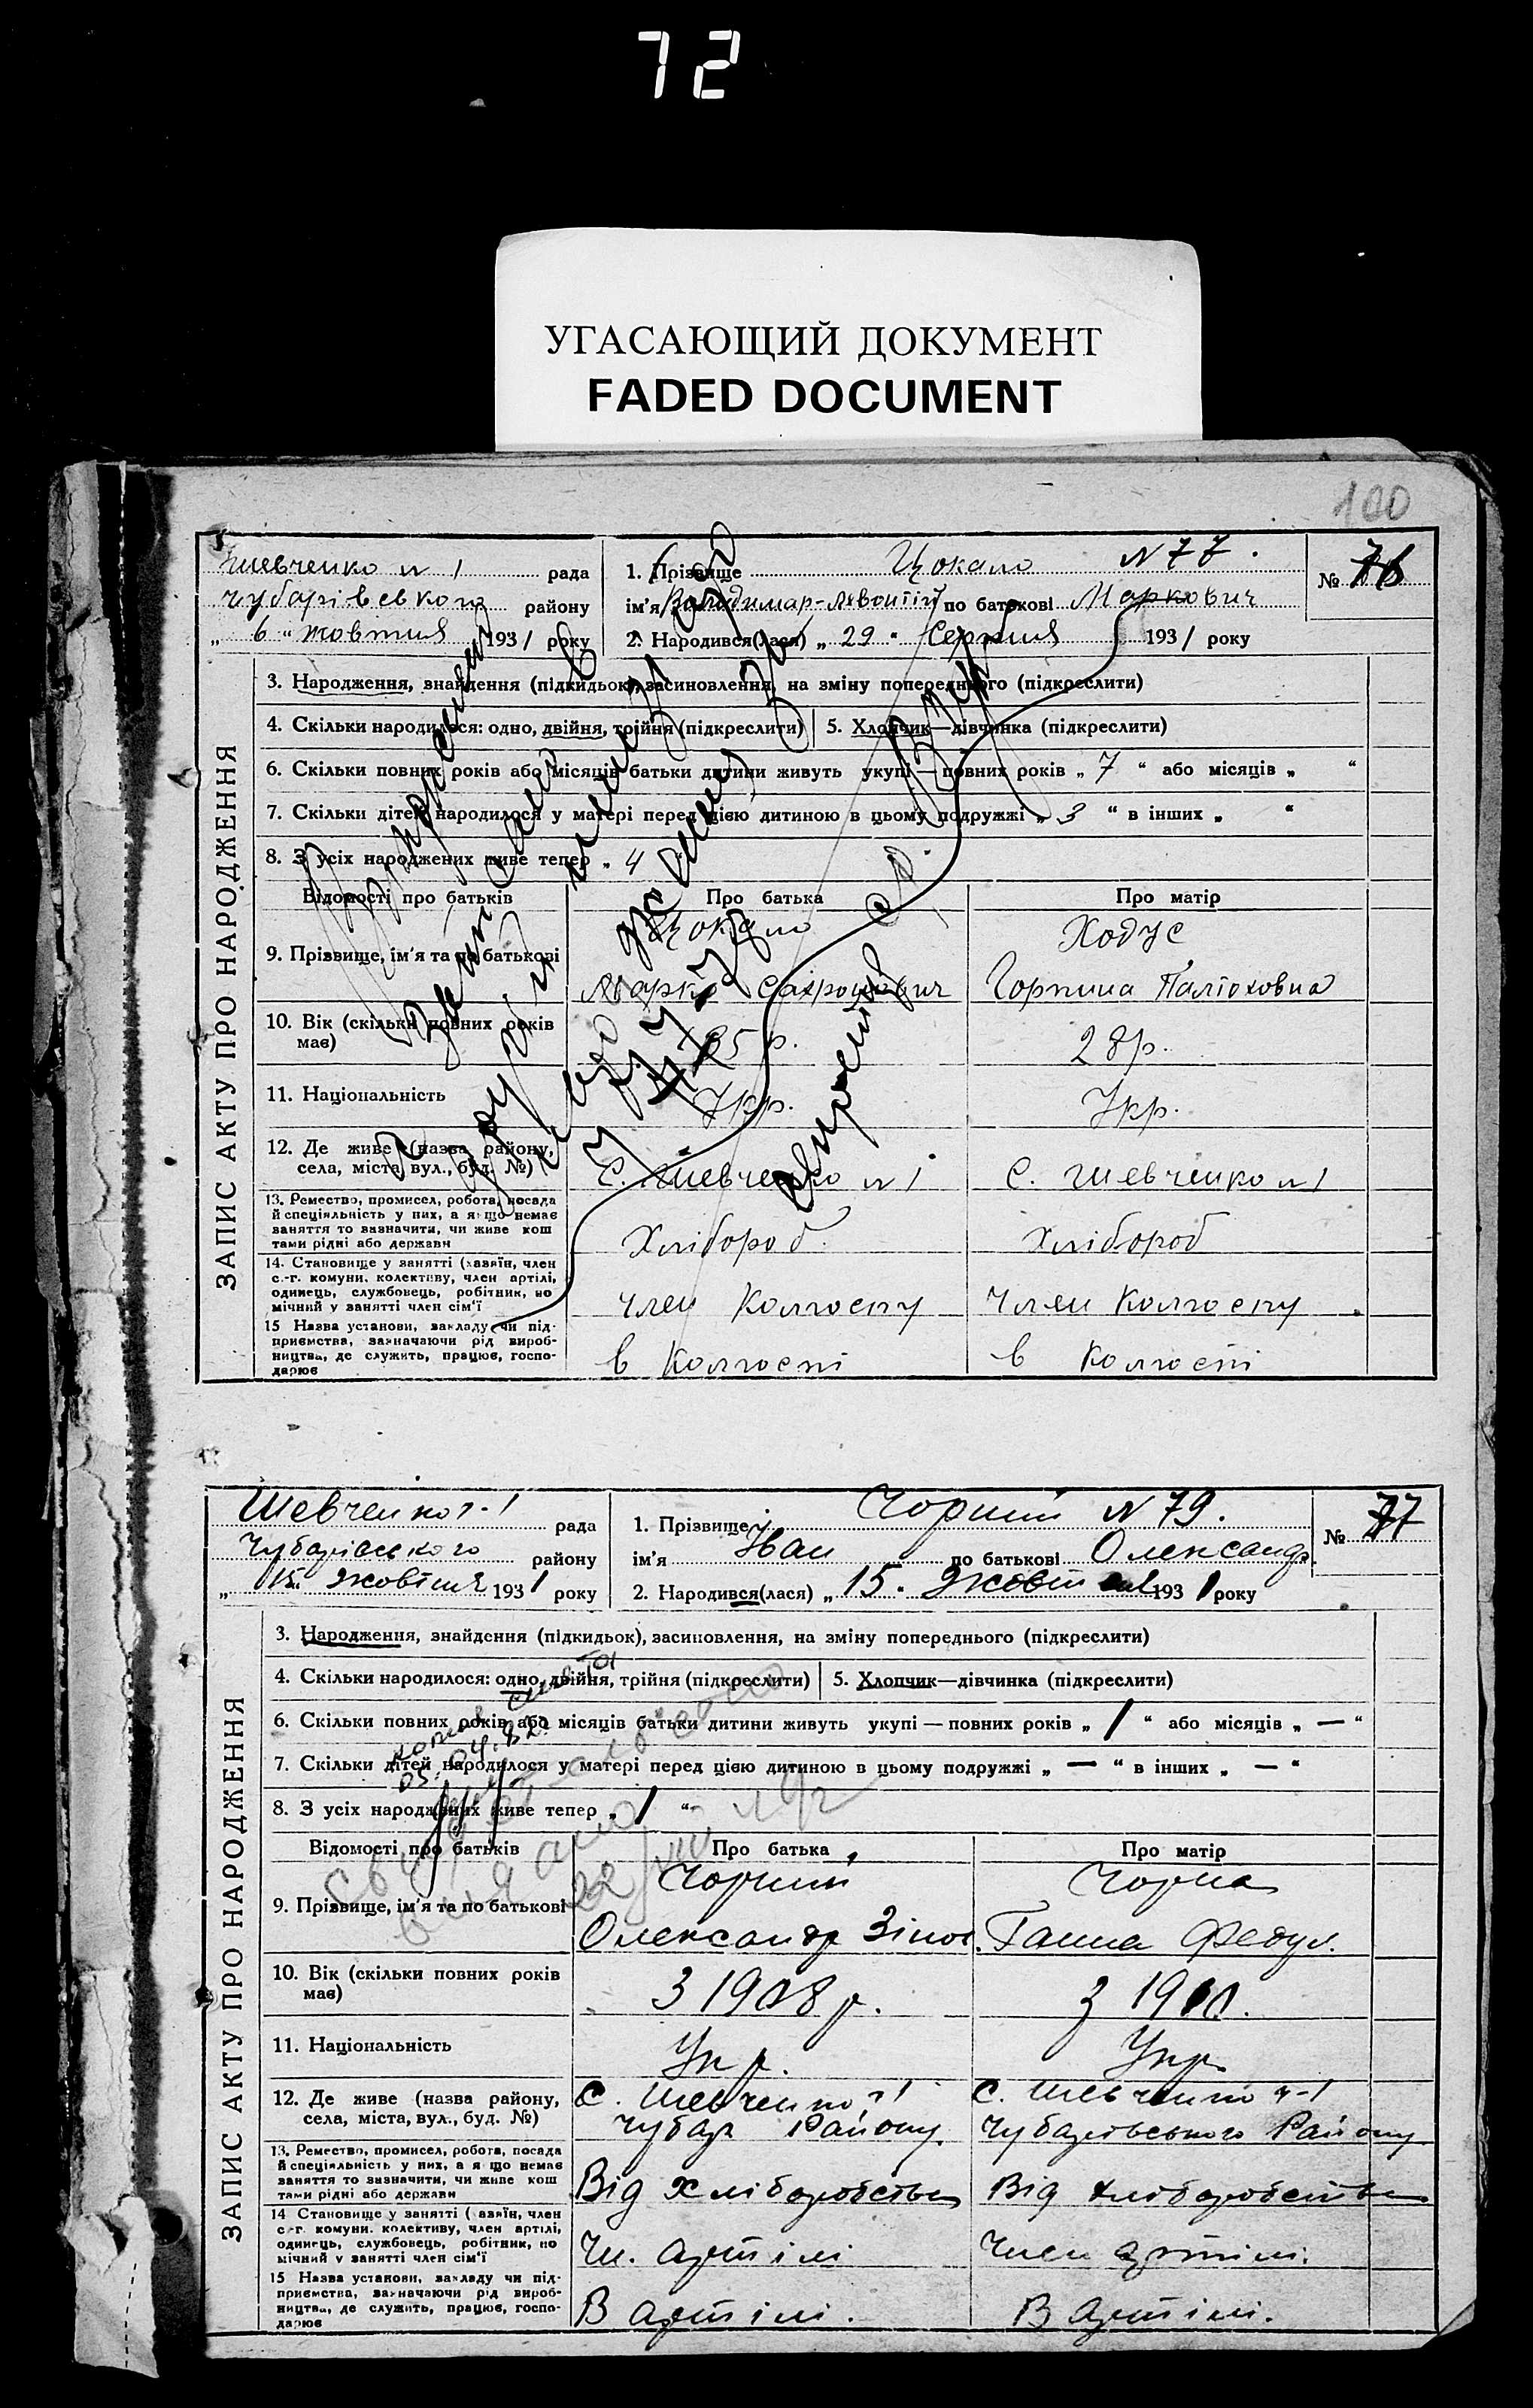 72
УГАСАЮЩИЙ ДОКУМЕНТ
FADED DOCUMENT
100
Шевченко №1 рада
Чубарівського району
„ 6 “ жовтня 1931 року
1. Прізвище Цокало №77.
ім'я Володимир-Лявонтій по батькові Маркович
2. Народився(лася) „ 29 “ Серпня 1931 року
№ 76
ЗАПИС АКТУ ПРО НАРОДЖЕННЯ
3. Народження, знайдення (підкидьок), засиновлення, на зміну попереднього (підкреслити)
4. Скільки народилося: одно, двійня, трійня (підкреслити)
5. Хлопчик—дівчинка (підкреслити)
6. Скільки повних років або місяців батьки дитини живуть укупі — повних років „ 7 “ або місяців „ “
7. Скільки дітей народилося у матері перед цією дитиною в цьому подружжі „ 3 “ в інших „ “
8. З усіх народжених живе тепер „ 4
Відомості про батьків Про батька Про матір
9. Прізвище, ім'я та по батькові
Цокало Ходус
Марко Горпина
10. Вік (скільки повних років має)
35 р. 28 р.
11. Національність
Укр. Укр.
12. Де живе (назва району, села, міста, вул., буд. №)
С. Шевченко №1 С. Шевченко №1
13. Ремество, промисел, робота, посада
й спеціяльність у них, а якщо немає
заняття то зазначити, чи живе кош
тами рідні або держави
Хлібороб. Хлібороб
14. Становище у занятті (хазяїн, член
с.-г. комуни, колективу, член артілі,
одинець, службовець, робітник, по
мічний у занятті член сім'ї
член Колгоспу член Колгоспу
15 Назва установи, закладу чи під-
приємства, зазначаючи рід вироб-
ництва, де служить, працює, госпо-
дарює
в Колгоспі в Колгоспі
Шевченко №-1 рада
Чубарівського району
„ 15. жовтня 1931 року
1. Прізвище Чорний №79.
ім'я Іван по батькові Олександр.
2. Народився(лася) „ 15. жовтня 1931 року
№ 77
ЗАПИС АКТУ ПРО НАРОДЖЕННЯ
3. Народження, знайдення (підкидьок), засиновлення, на зміну попереднього (підкреслити)
4. Скільки народилося: одно, двійня, трійня (підкреслити)
5. Хлопчик—дівчинка (підкреслити)
6. Скільки повних років або місяців батьки дитини живуть укупі — повних років „ 1 “ або місяців „ — “
7. Скільки дітей народилося у матері перед цією дитиною в цьому подружжі „ — “ в інших „ — “
8. З усіх народжених живе тепер „ 1 “
Відомості про батьків Про батька Про матір
9. Прізвище, ім'я та по батькові
Чорний Чорна
Олександр Зінов. Ганна Федул.
10. Вік (скільки повних років має)
З 1908 р. З
11. Національність
Укр. Укр.
12. Де живе (назва району, села, міста, вул., буд. №)
С. Шевченко №1 С. Шевченко №-1
Чубар Району Чубарівського Району
13. Ремество, промисел, робота, посада
й спеціяльність у них, а якщо немає
заняття то зазначити, чи живе кош
тами рідні або держави
Від хліборобства Від хліборобства
14 Становище у занятті (хазяїн, член
с.-г. комуни, колективу, член артілі,
одинець, службовець, робітник, по
мічний у занятті член сім'ї
Чл. артілі Член артілі.
15 Назва установи, закладу чи під-
приємства, зазначаючи рід вироб-
ництва, де служить, працює, госпо-
дарює
В артілі. В артілі.